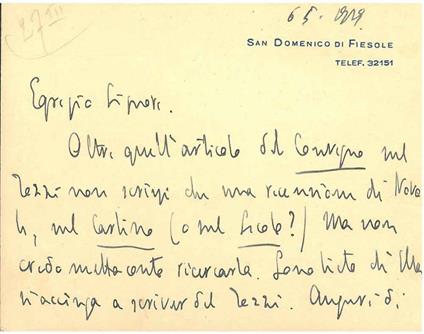 6 5. 1929
SAN DOMENICO DI FIESOLE
TELEF. 32151
Egregio Signore.
Oltre quell'articolo del Convegno sul
Tozzi non scrissi che una recensione di Novale,
sul Carlino (o sul Secolo?) Ma non
credo metta conto ricercarla. Sono lieto che Ella
si accinga a scriver del Tozzi. Auguri di